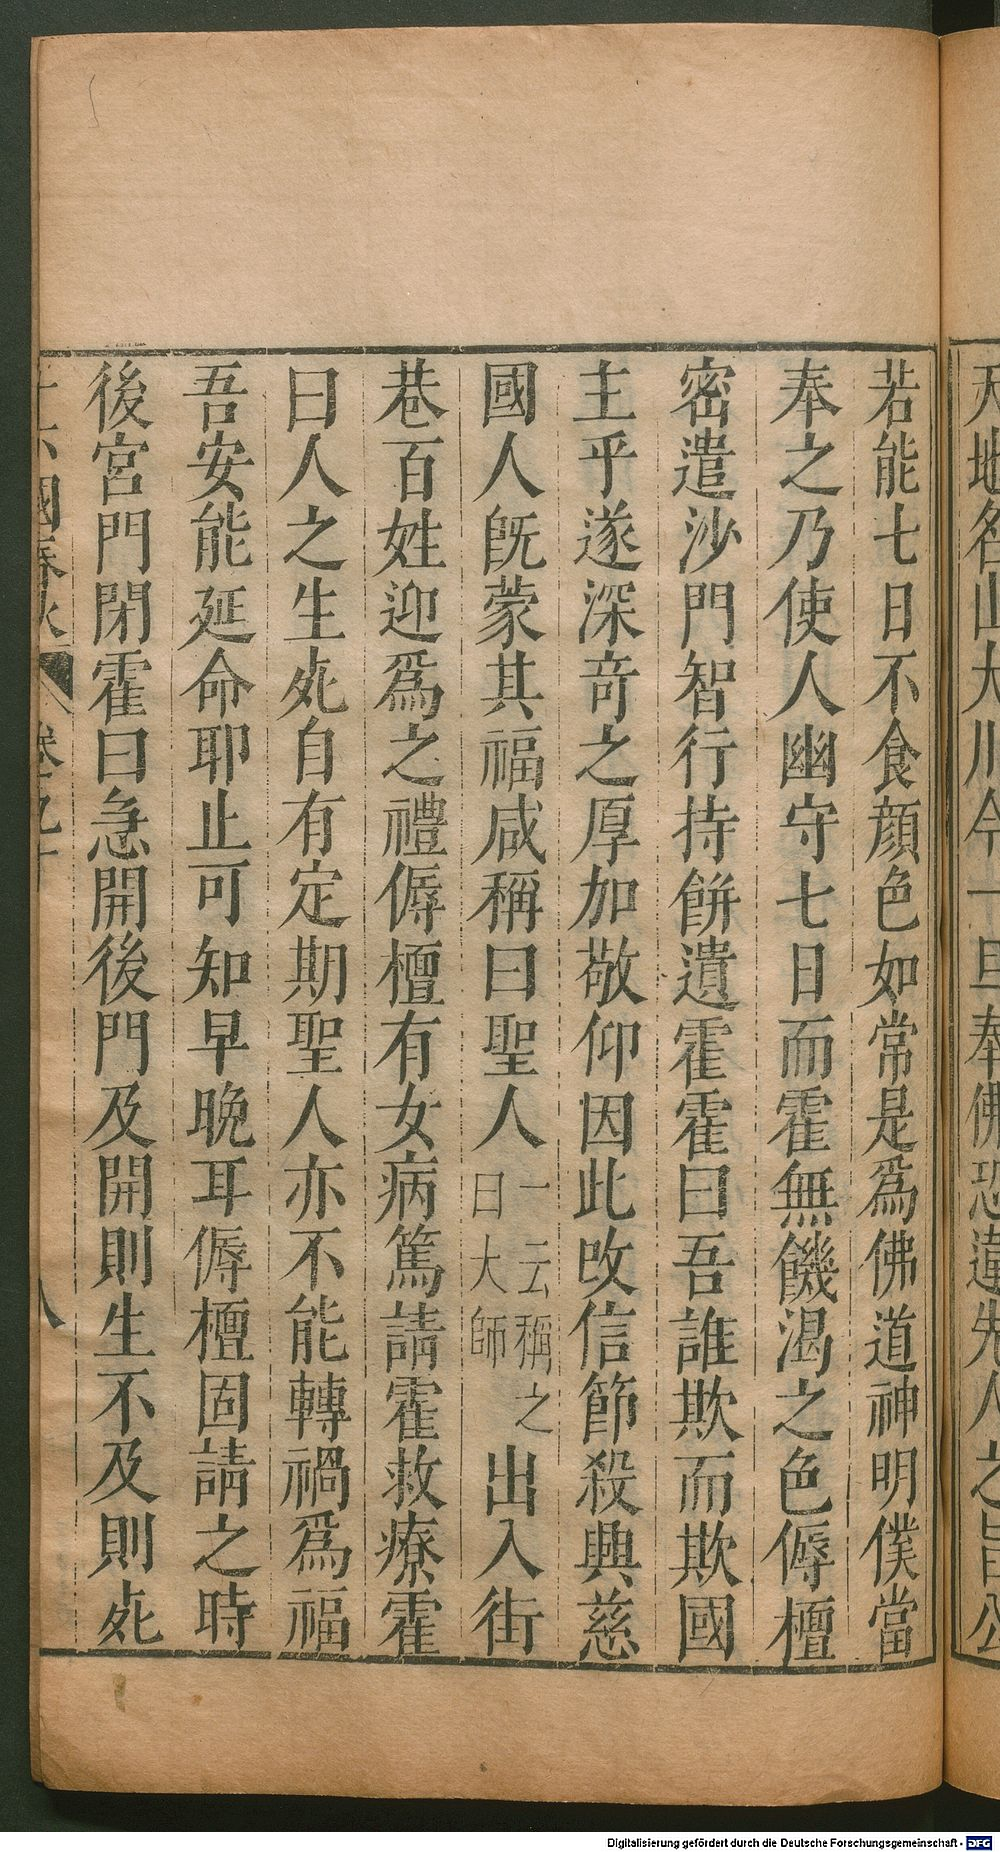 天地名山大川今一旦奉佛恐違先人之旨公
若能七日不食顔色如常是爲佛道神明僕當
奉之乃使人幽守七日而霍無饑渴之色傉檀
密遣沙門智行持餅遺霍霍曰吾誰欺而欺國
主乎遂深竒之厚加敬仰因此改信節殺興慈
國人旣蒙其福咸稱曰聖人一云稱之曰大師出入街
巷百姓迎爲之禮傉檀有女病篤請霍救療霍
曰人之生𣦸自有定期聖人亦不能轉禍爲福
吾安能延命耶止可知早晚耳傉檀固請之時
後宮門閉霍曰急開後門及開則生不及則𣦸
十六國春秋 卷九十 八
Digitalisierung gefördert durch die Deutsche Forschungsgemeinschaft - DFG